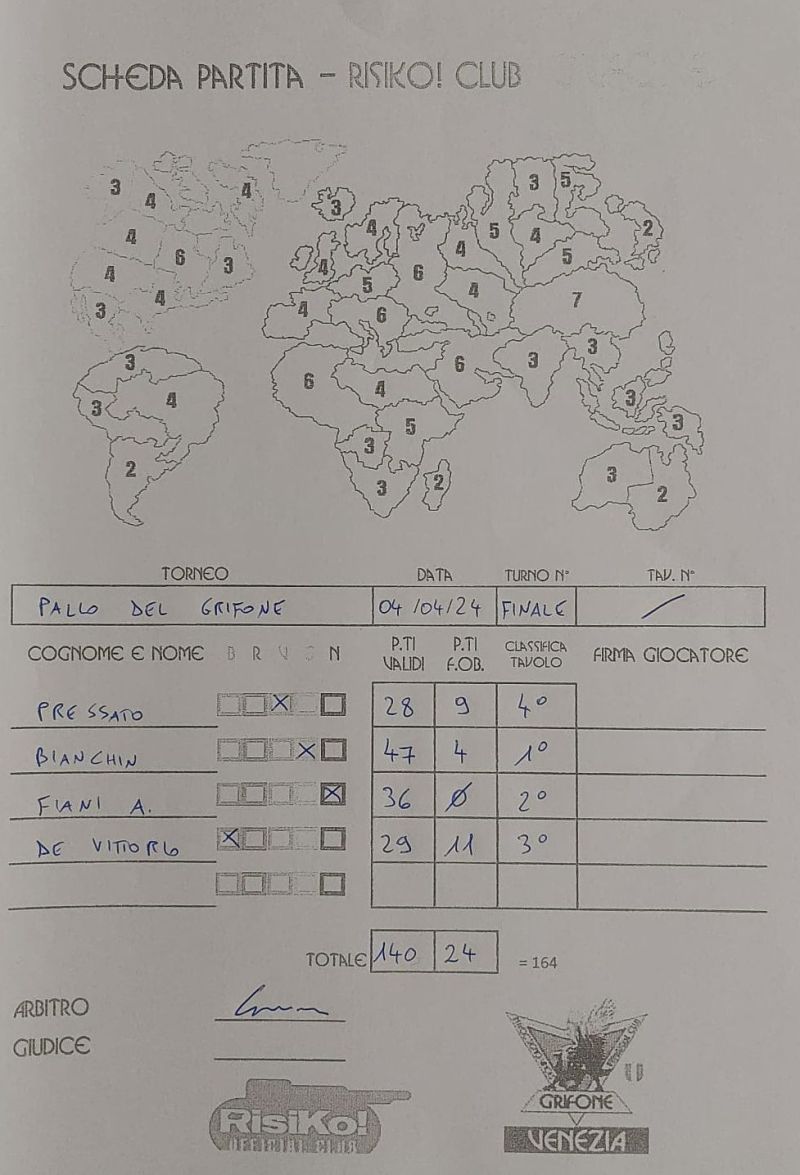 SCHEDA PARTITA - RISIKO! CLUB
3 4 4
3
3 5
4
6 3
4 4
3
4 4
5
6
4 6
4
5 4 5
4
2
7
3
3 4
3
2
6 4
5
3
3
2
6
3 3
3
3
3
2
TORNEO DATA TURNO N° TAV. N°
PALLO DEL GRIFONE 04/04/24 FINALE /
COGNOME E NOME B R V G N P.TI VALIDI P.TI F.OB. CLASSIFICA TAVOLO FIRMA GIOCATORE
PRESSATO X 28 9 4°
BIANCHIN X 47 4 1°
FIANI A. X 36 Ø 2°
DE VITTORIO X 29 11 3°
TOTALE 140 24 = 164
ARBITRO
GIUDICE
RisiKo!
OFFICIAL CLUB
GRIFONE
VENEZIA